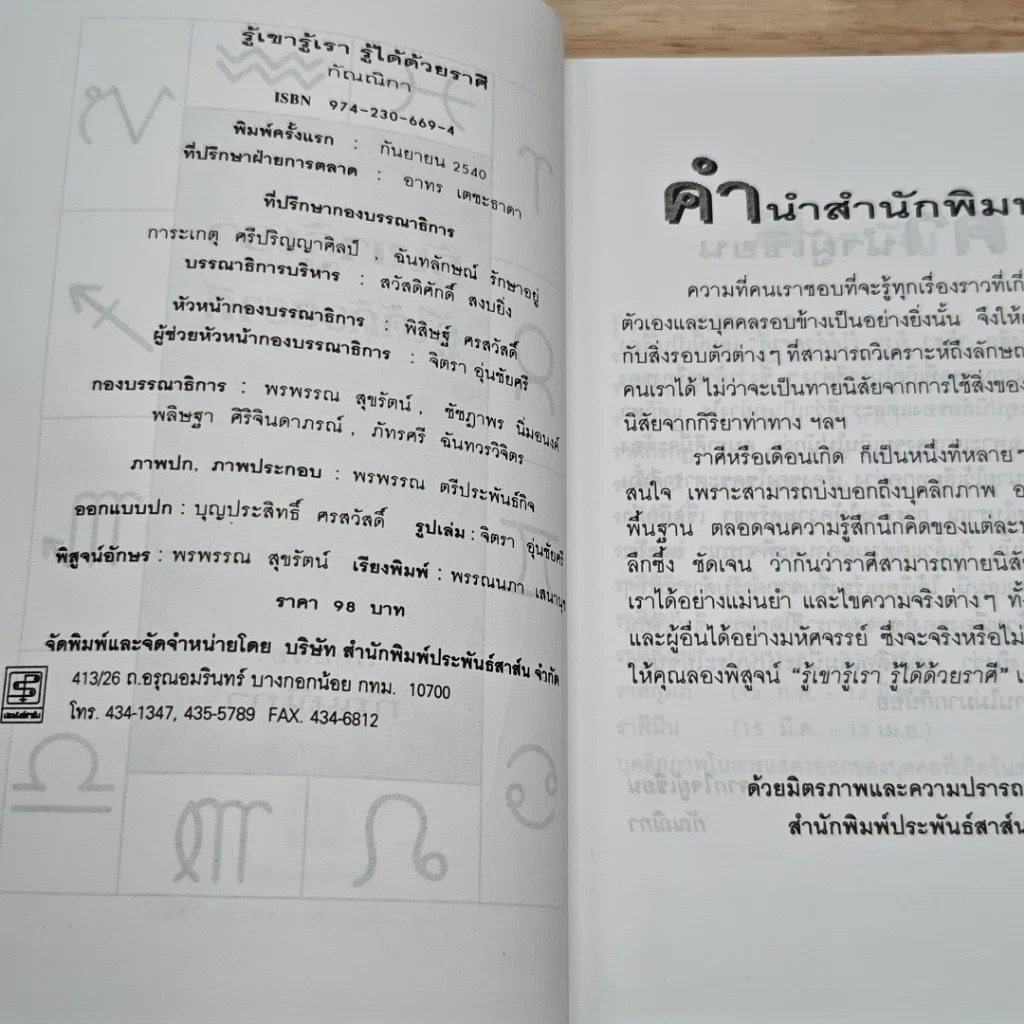 รู้เขารู้เรา รู้ได้ด้วยราศี
กัณณิกา
ISBN 974-230-669-4
พิมพ์ครั้งแรก : กันยายน 2540
ที่ปรึกษาฝ่ายการตลาด : อาทร เตชะธาดา
ที่ปรึกษากองบรรณาธิการ
การะเกตุ ศรีปริญญาศิลป์ , ฉันทลักษณ์ รักษาอยู่
บรรณาธิการบริหาร : สวัสดิศักดิ์ สงบยิ่ง
หัวหน้ากองบรรณาธิการ : พิสิษฐ์ ศรสวัสดิ์
ผู้ช่วยหัวหน้ากองบรรณาธิการ : จิตรา อุ่นชัยศรี
กองบรรณาธิการ : พรพรรณ สุขรัตน์ , ชัชฎาพร นิ่มอนงค์
พลิษฐา ศิริจินดาภรณ์ , ภัทรศรี ฉันทวรวิจิตร
ภาพปก, ภาพประกอบ : พรพรรณ ตรีประพันธ์กิจ
ออกแบบปก : บุญประสิทธิ์ ศรสวัสดิ์ รูปเล่ม : จิตรา อุ่นชัยศรี
พิสูจน์อักษร : พรพรรณ สุขรัตน์ เรียงพิมพ์ : พรรณนภา
ราคา 98 บาท
จัดพิมพ์และจัดจำหน่ายโดย บริษัท สำนักพิมพ์ประพันธ์สาส์น จำกัด
413/26 ถ.อรุณอมรินทร์ บางกอกน้อย กทม. 10700
โทร. 434-1347, 435-5789 FAX. 434-6812
ประพันธ์สาส์น
คำนำสำนักพิมพ์
ความที่คนเราชอบที่จะรู้ทุกเรื่องราวที่
ตัวเองและบุคคลรอบข้างเป็นอย่างยิ่งนั้น จึงให้
กับสิ่งรอบตัวต่างๆ ที่สามารถวิเคราะห์ถึงลักษณ
คนเราได้ ไม่ว่าจะเป็นทายนิสัยจากการใช้สิ่งของ
นิสัยจากกิริยาท่าทาง ฯลฯ
ราศีหรือเดือนเกิด ก็เป็นหนึ่งที่หลายๆ
สนใจ เพราะสามารถบ่งบอกถึงบุคลิกภาพ
พื้นฐาน ตลอดจนความรู้สึกนึกคิดของแต่ละ
ลึกซึ้ง ชัดเจน ว่ากันว่าราศีสามารถทายนิสัย
เราได้อย่างแม่นยำ และไขความจริงต่างๆ
และผู้อื่นได้อย่างมหัศจรรย์ ซึ่งจะจริงหรือไม่
ให้คุณลองพิสูจน์ “รู้เขารู้เรา รู้ได้ด้วยราศี”
ราศีมีน (15 มี.ค. - 12 เม.ย.)
ด้วยมิตรภาพและความปรารถ
สำนักพิมพ์ประพันธ์สาส์น